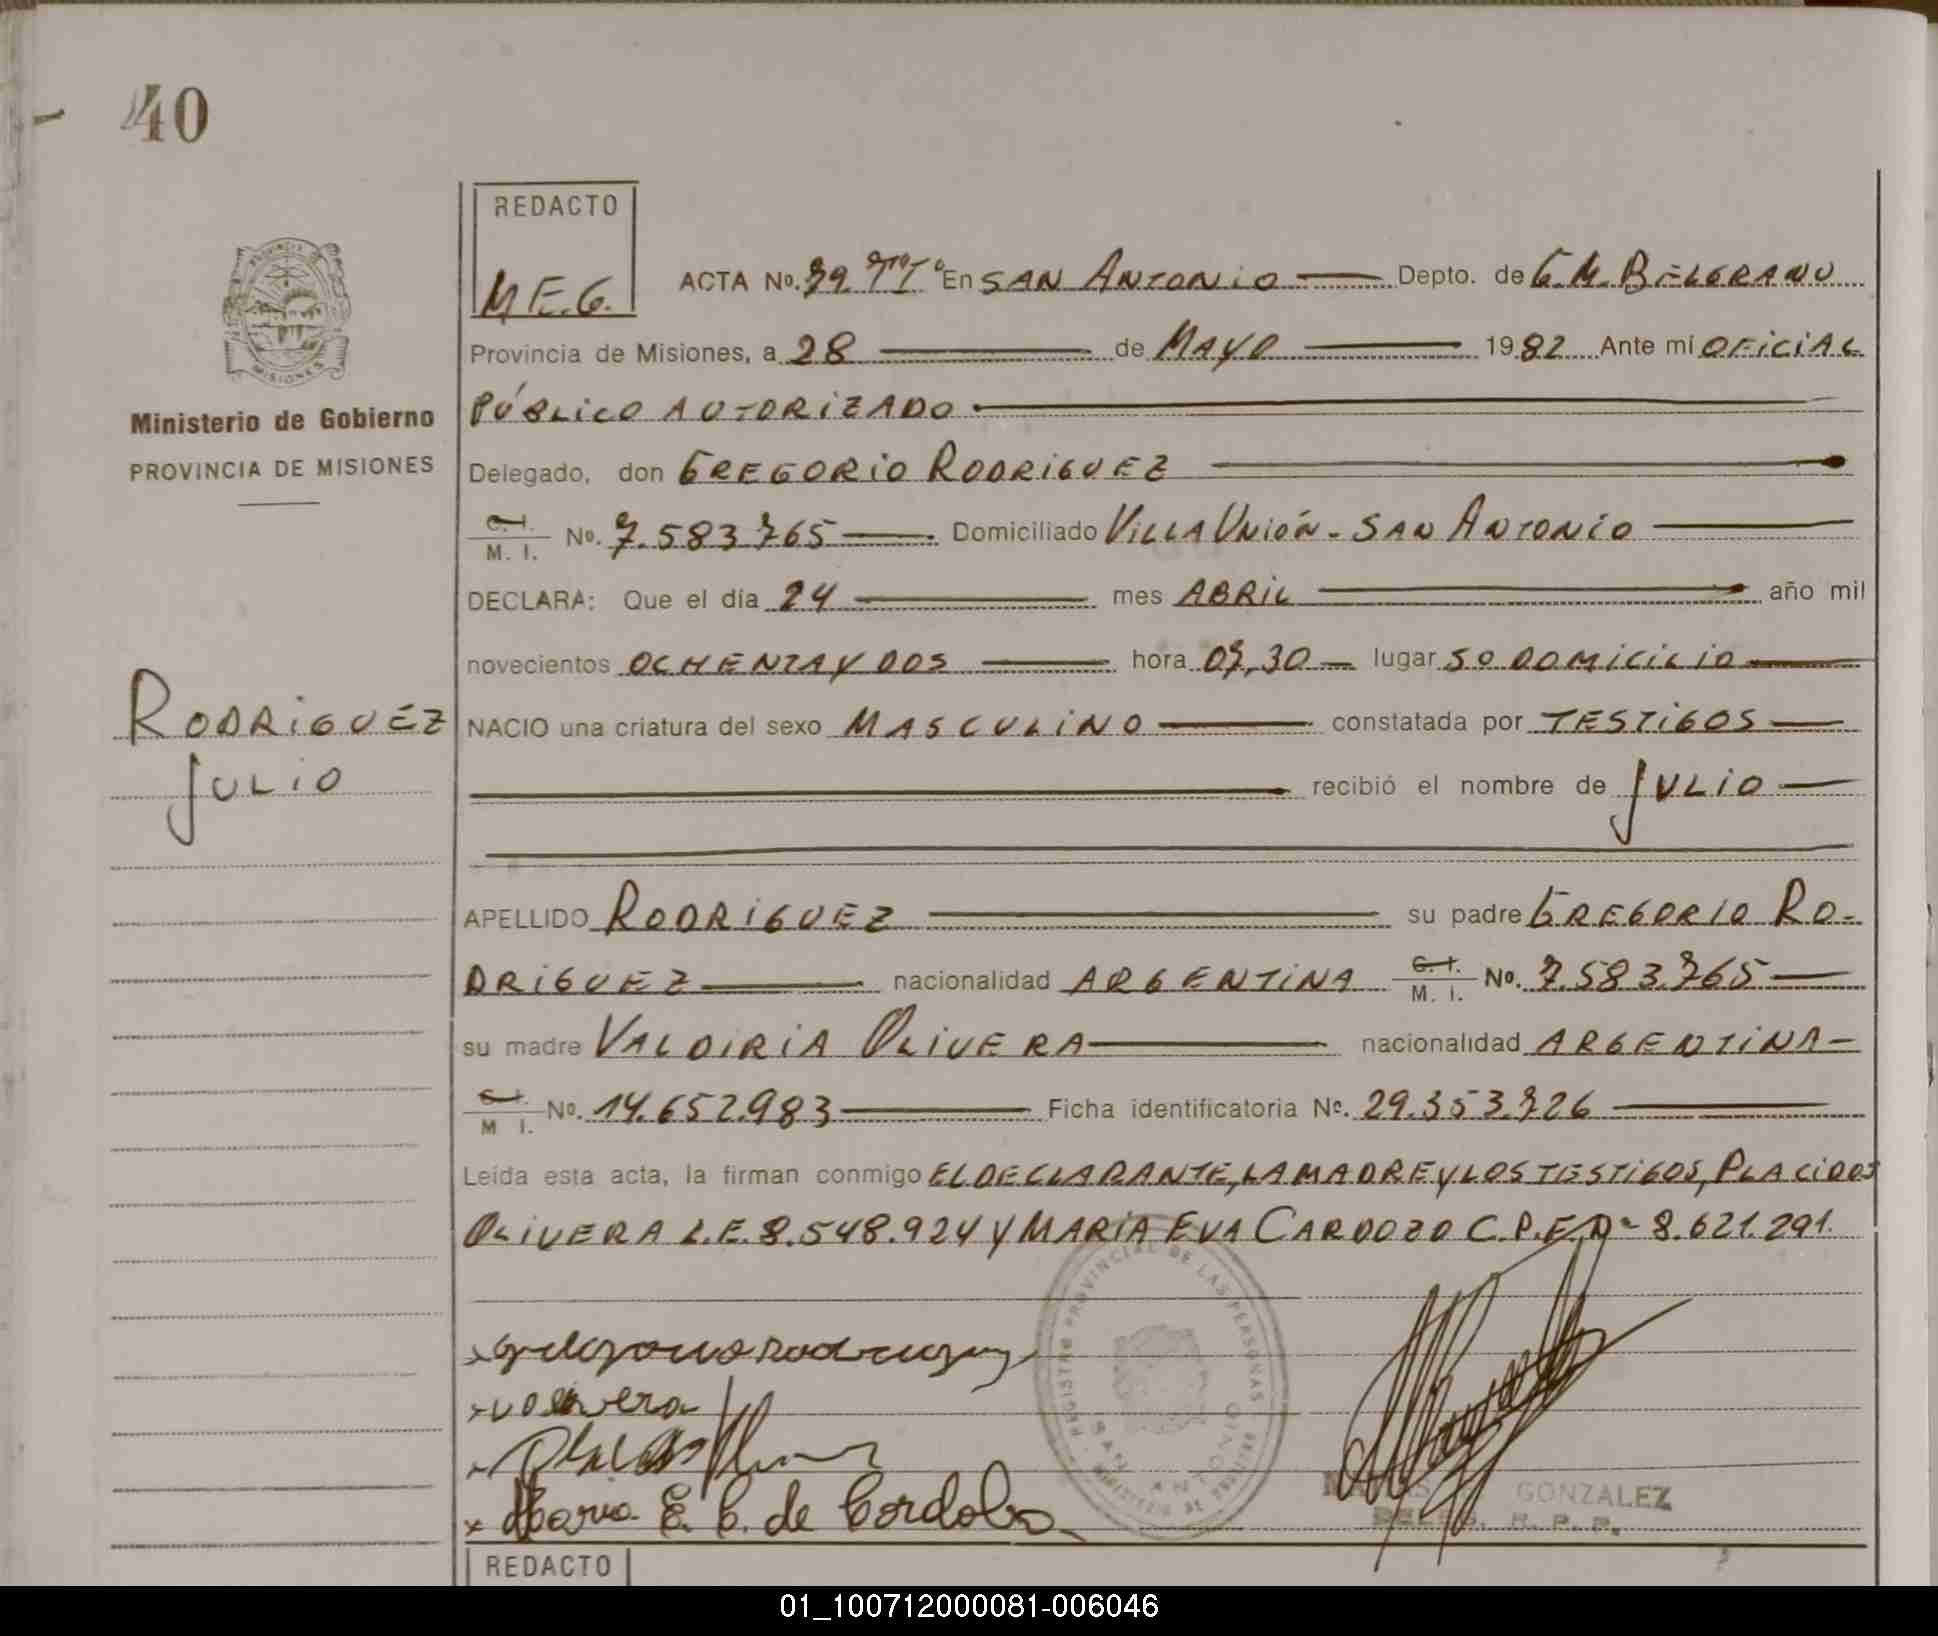 40
REDACTO
M.E.G.
ACTA No. 79 Tº Iº En SAN ANTONIO Depto. de G.M. BELGRANO
Provincia de Misiones, a 28 de MAYO 1982 Ante mí OFICIAL
PÚBLICO AUTORIZADO
Ministerio de Gobierno
PROVINCIA DE MISIONES
Delegado, don GREGORIO RODRIGUEZ
C. I. / M. I. No. 7.583.765 Domiciliado VILLA UNIÓN - SAN ANTONIO
DECLARA: Que el día 24 mes ABRIL año mil
novecientos OCHENTA Y DOS hora 07,30 lugar SO DOMICILIO
RODRIGUEZ
JULIO
NACIO una criatura del sexo MASCULINO constatada por TESTIGOS
recibió el nombre de JULIO
APELLIDO RODRIGUEZ su padre GREGORIO RO-
DRIGUEZ nacionalidad ARGENTINA C. I. / M. I. No. 7.583.765
su madre VALDIRIA OLIVERA nacionalidad ARGENTINA
C. I. / M. I. No. 14.652.983 Ficha identificatoria No. 29.353.726
Leída esta acta, la firman conmigo EL DECLARANTE, LA MADRE Y LOS TESTIGOS, PLACIDOS
OLIVERA L.E. 8.548.924 Y MARIA EVA CARDOZO C.P.F. Nº 8.621.291.
REGISTRO PROVINCIAL DE LAS PERSONAS
SAN ANTONIO
Maria E. C. de Cordoba
GONZALEZ
DELEG. R. P. P.
REDACTO
01_100712000081-006046